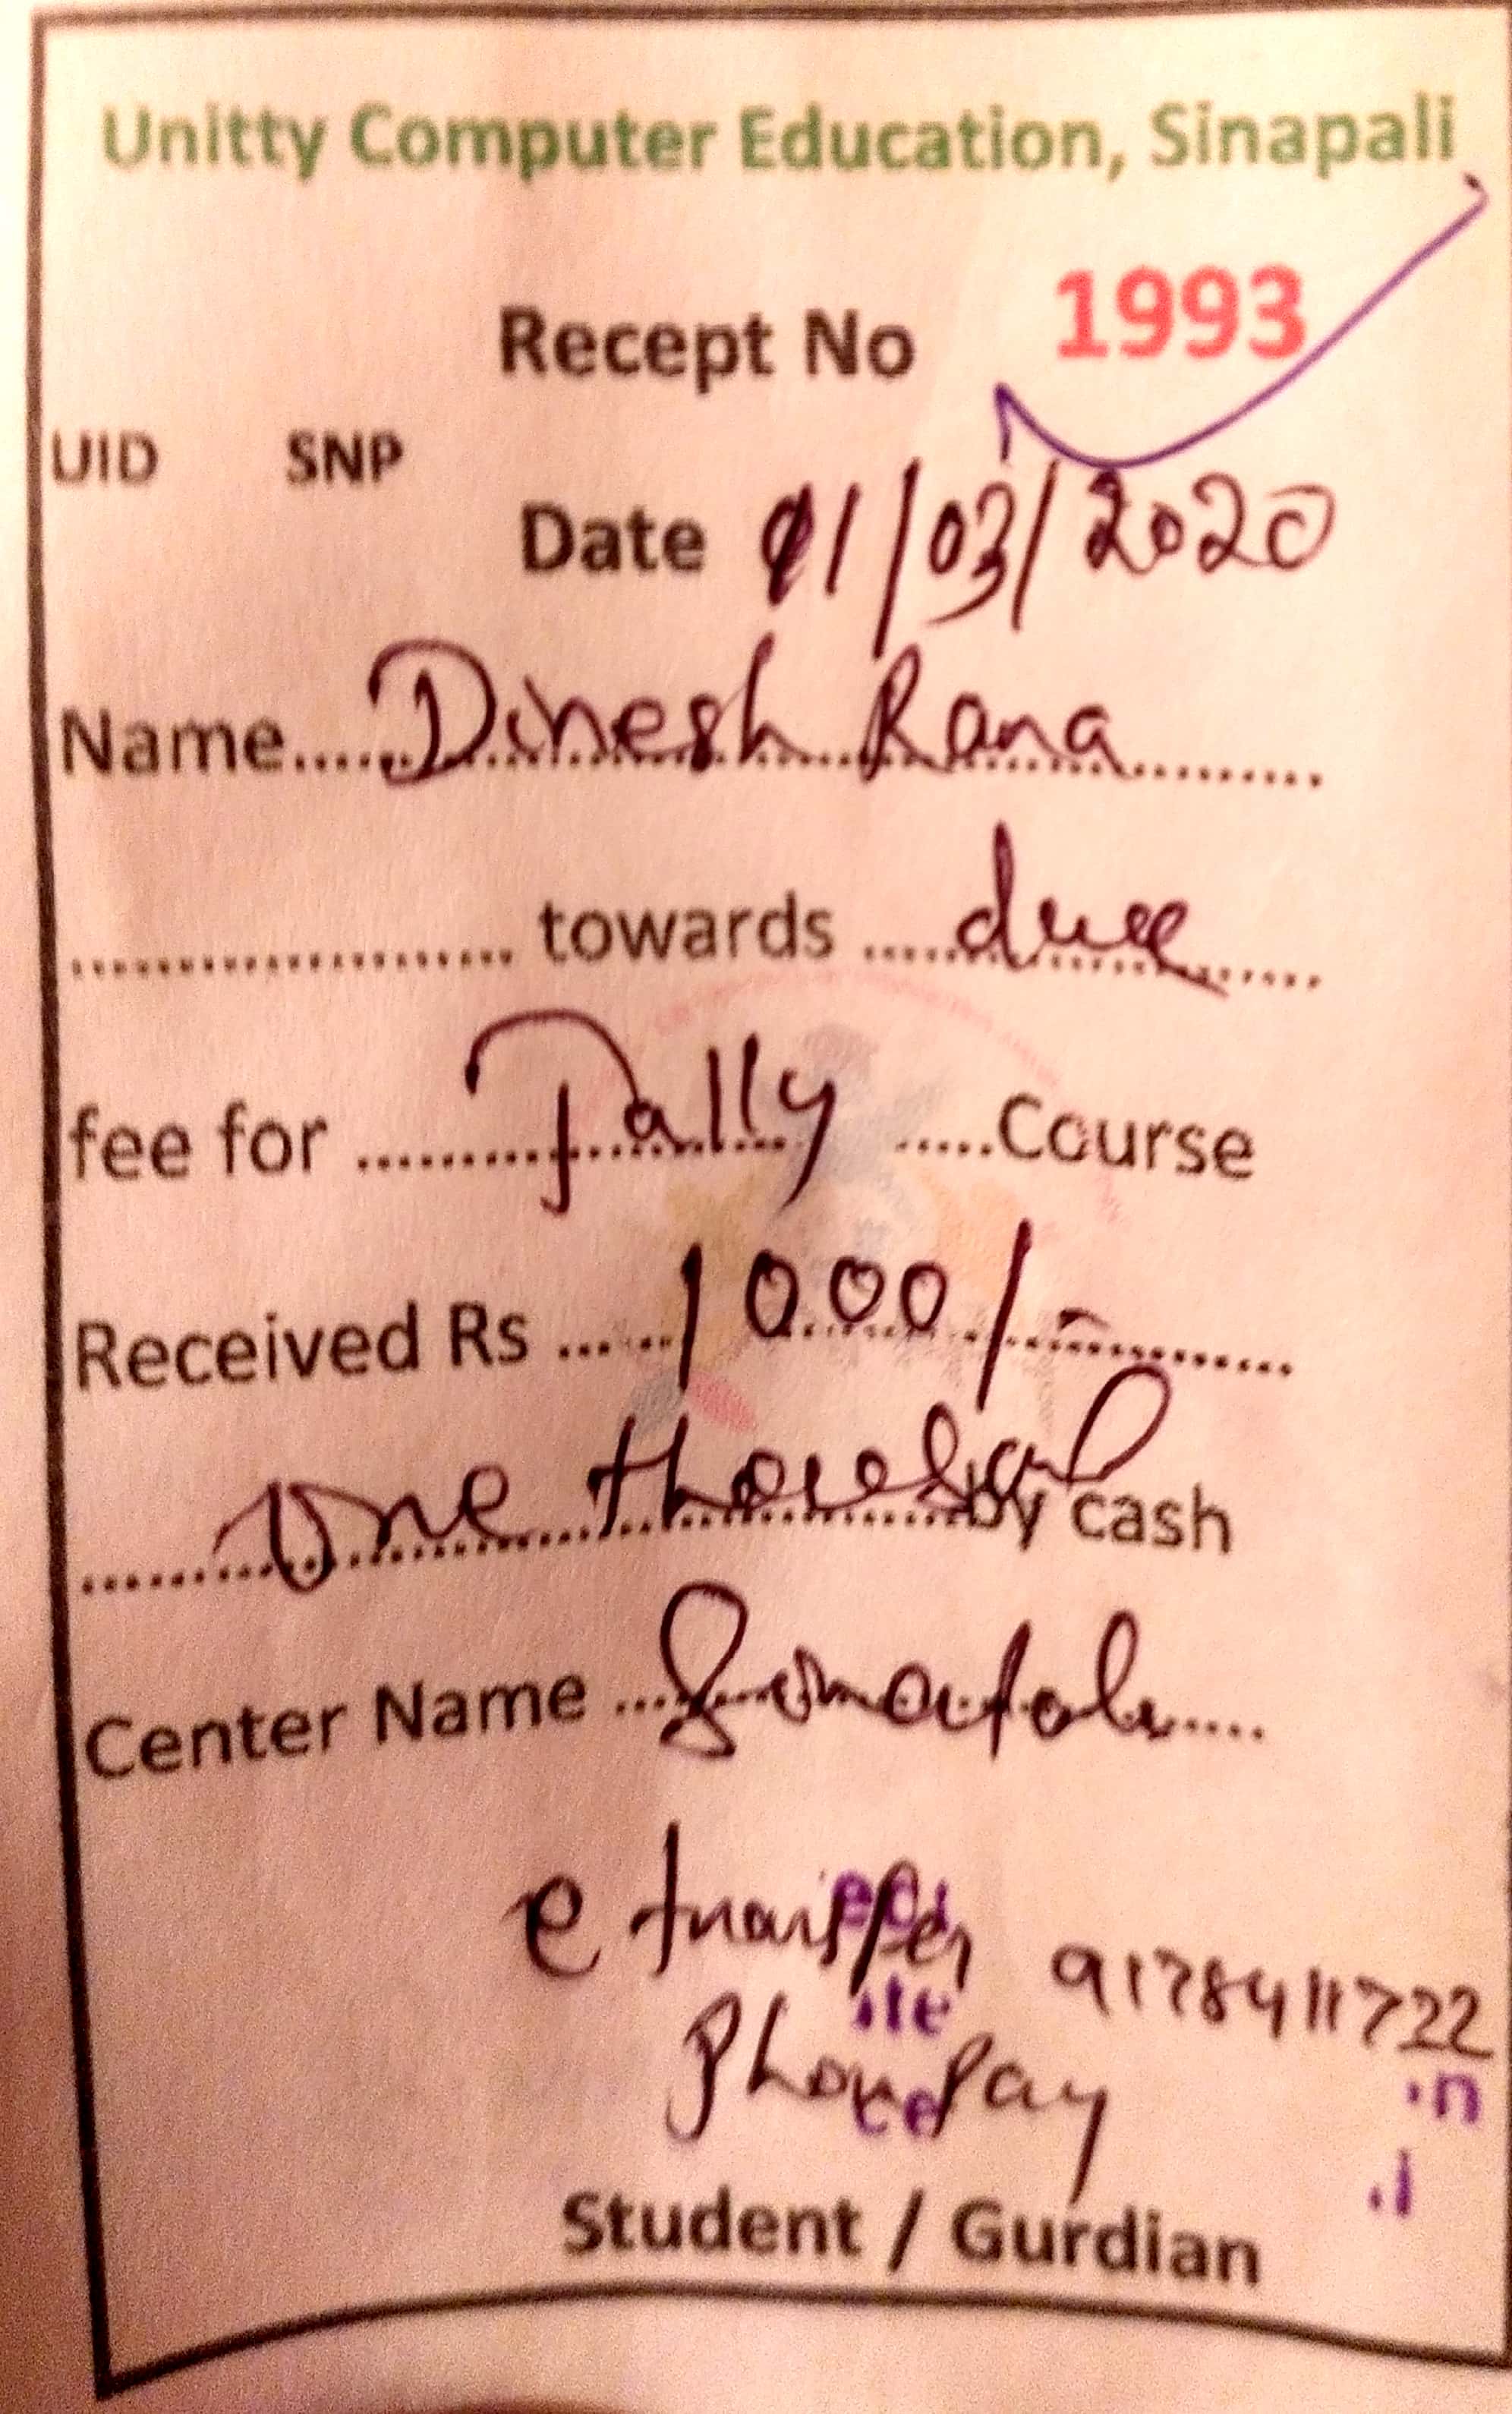 Unitty Computer Education, Sinapali
Recept No 1993
UID SNP
Date 01/03/2020
Name.....Dinesh Rana.........
..................... towards ....due.....
fee for .........Tally .....Course
Received Rs .....1000/-..........
......One thousand by cash
Center Name ............
e transfer 9178411722
Phone Pay
Student / Gurdian